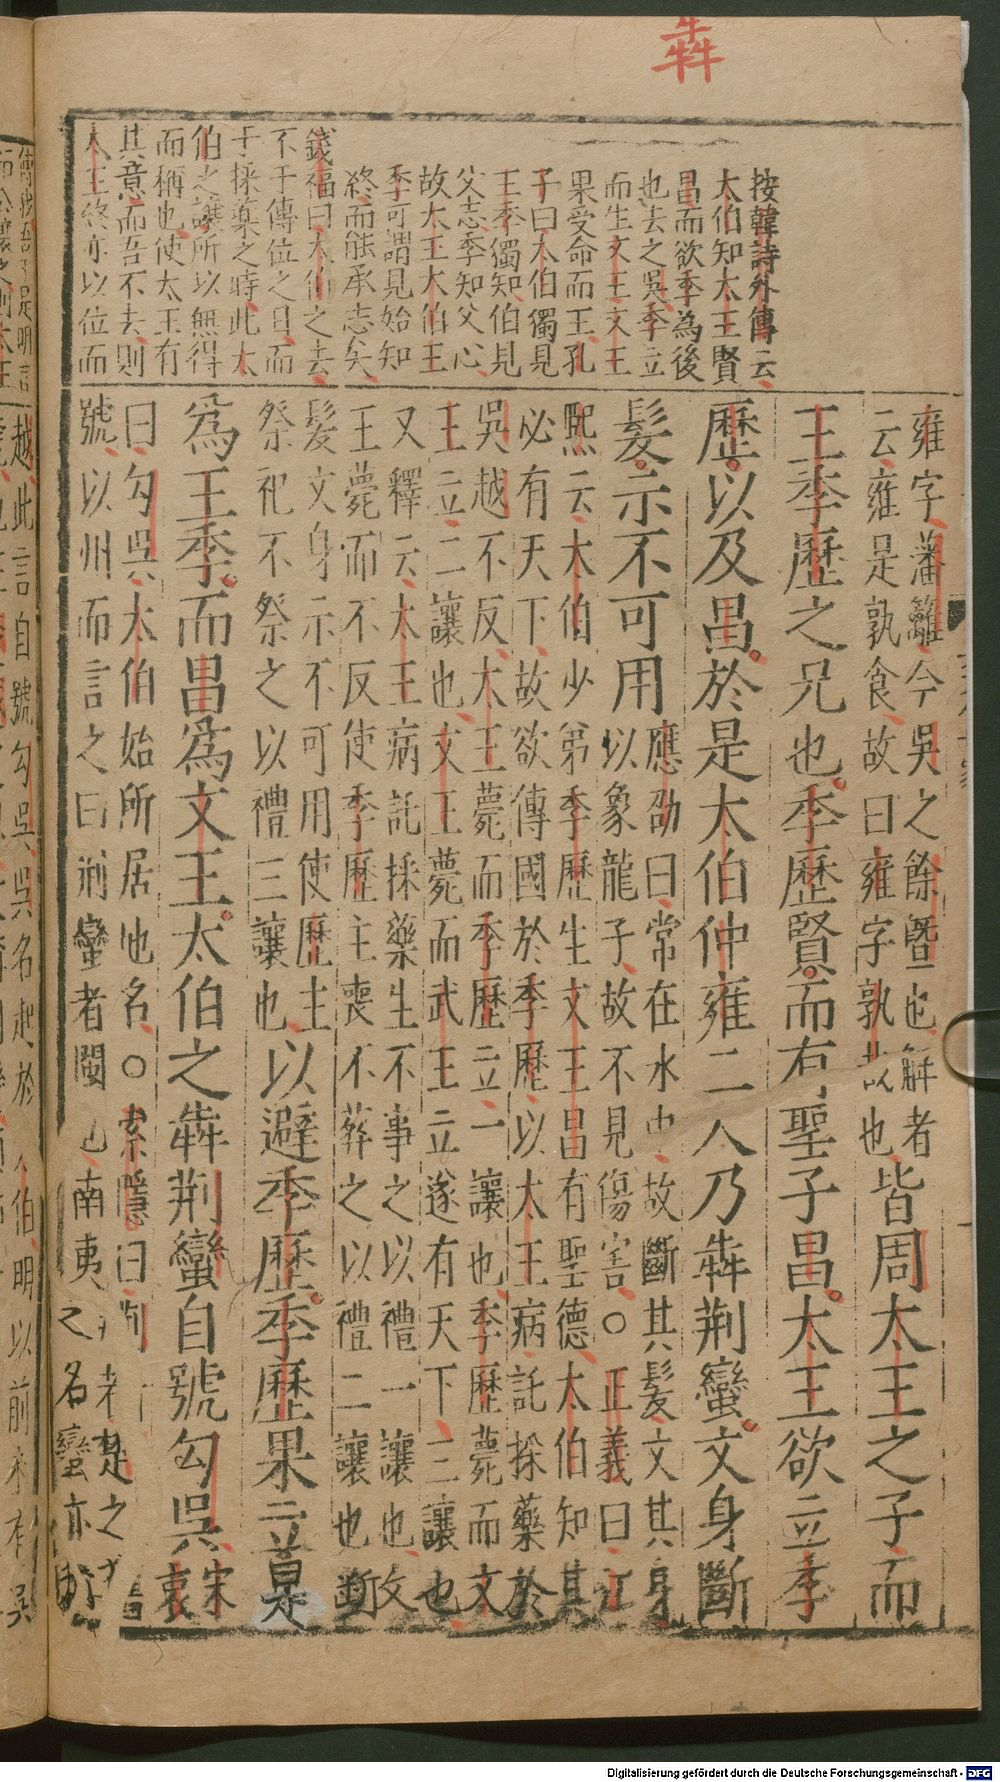 犇
按韓詩外傳云
太伯知大王賢
昌而欲季為後
也去之吳季立
而生文王文王
果受命而王孔
子曰大伯獨見
王季獨知伯見
父志季知父心
故大王大伯王
季可謂見始知
終而能承志矣
錢福曰太伯之去
不于傳位之日而
于採藥之時此太
伯之讓所以無得
而稱也使太王有
其意而吾不去則
太王終亦以位而
雍字藩籬今吳之餘曁也解者
云雍是孰食故曰雍字孰哉也
皆周太王之子而
王季歷之兄也季歷賢而有聖子昌太王欲立季
歷以及昌於是太伯仲雍二人乃犇荆蠻文身斷
髮示不可用
應劭曰常在水中故斷其髮文其身
以象龍子故不見傷害○正義曰江
熙云太伯少弟季歷生文王昌有聖德太伯知其
必有天下故欲傳國於季歷以太王病託採藥於
吳越不反太王薨而季歷立一讓也季歷薨而文
王立二讓也文王薨而武王立遂有天下三讓也
又釋云太王病託採藥生不事之以禮一讓也文
王薨而不反使季歷主喪不葬之以禮二讓也斷
髮文身示不可用使歷主
祭祀不祭之以禮三讓也
以避季歷季歷果立是
為王季而昌為文王太伯之犇荆蠻自號勾吳
宋
衷
曰勾吳太伯始所居地名○索隱曰荆者楚之舊
號以州而言之曰荆蠻者閩也南夷之名蠻亦
越此言自號勾吳吳名起於太伯明以前未有吳
Digitalisierung gefördert durch die Deutsche Forschungsgemeinschaft - DFG